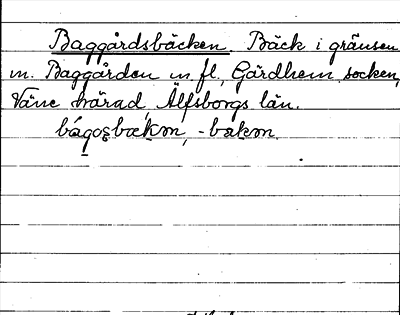 Baggårdsbäcken. Bäck i gränsen
m. Baggården m fl, Gärdhem socken,
Väne härad, Älfsborgs län.